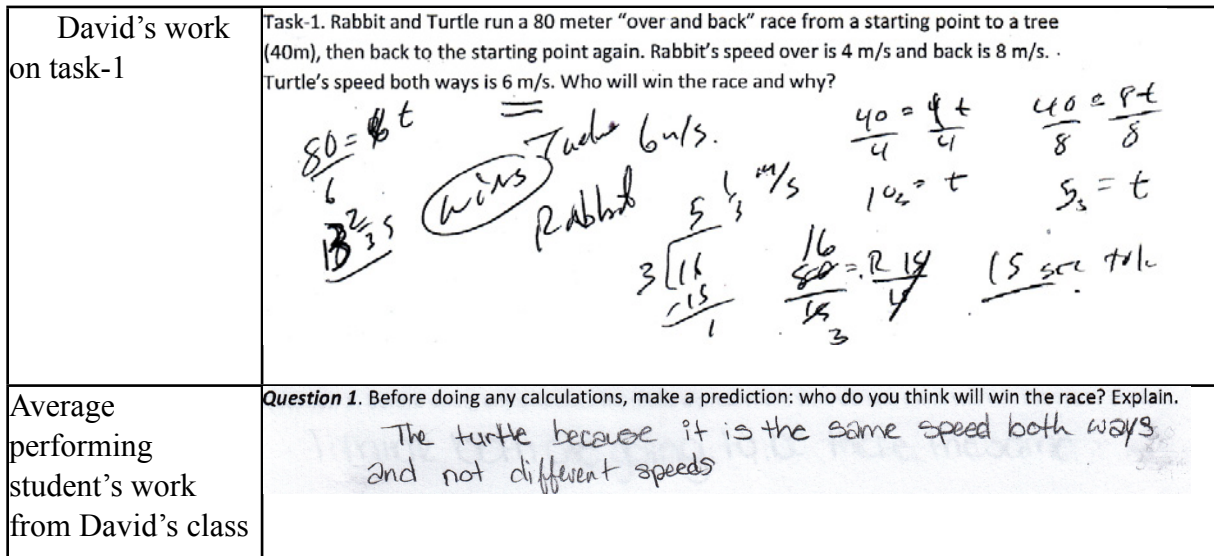 David's work
on task-1
Task-1. Rabbit and Turtle run a 80 meter “over and back” race from a starting point to a tree
(40m), then back to the starting point again. Rabbit's speed over is 4 m/s and back is 8 m/s. .
Turtle's speed both ways is 6 m/s. Who will win the race and why?
80 = 6t
6
13 2/3 s
wins
6 m/s.
Rabbit
5 1/3 m/s
3 16
-15
1
40 = 4t
4 4
10s = t
40 = 8t
8 8
5s = t
16
80 = R 15
15
3
15 sec
Average
performing
student's work
from David's class
Question 1. Before doing any calculations, make a prediction: who do you think will win the race? Explain.
The turtle because it is the same speed both ways
and not different speeds